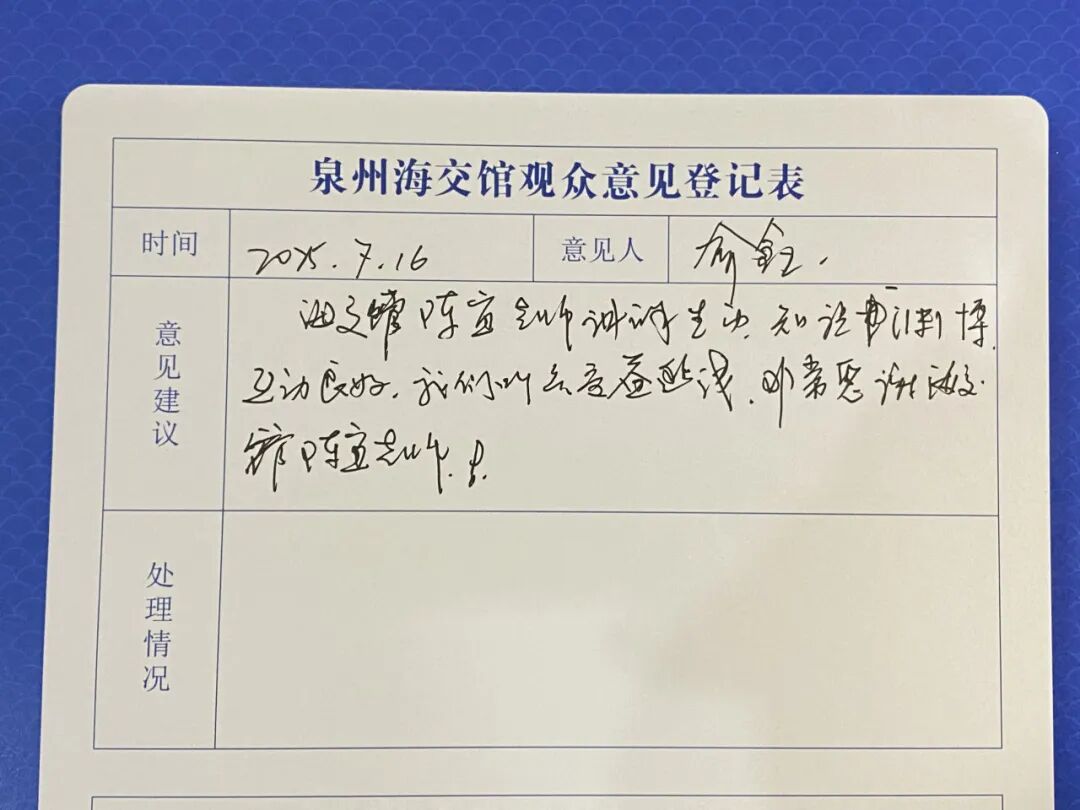 泉州海交馆观众意见登记表
时间 2025.7.16 意见人 俞
意见建议
海交馆陈宜老师讲课生动,知识渊博,
互动良好,我们听众受益匪浅,非常感谢海交
馆陈宜老师!
处理情况